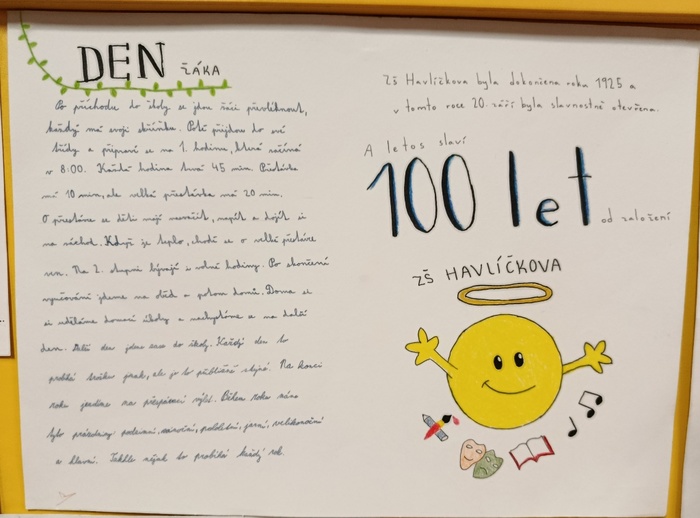 DEN ŽÁKA
Po příchodu do školy se jdou žáci převléknout,
každý má svoji skříňku. Poté přijdou do své
třídy a připraví se na 1. hodinu, která začíná
v 8:00. Každá hodina trvá 45 min. Přestávka
má 10 min, ale velká přestávka má 20 min.
O přestávce se děti mají nasvačit, napít a dojít si
na záchod. Když je teplo, chodí se o velké přestávce
ven. Na 2. stupni bývají i volné hodiny. Po skončení
vyučování jdeme na oběd a potom domů. Doma si
si uděláme domácí úkoly a nachystáme se na další
den. Další den jdeme zase do školy. Každý den to
probíhá trošku jinak, ale je to přibližně stejné. Na konci
roku jezdíme na výlet. Během roku
jsou prázdniny podzimní, vánoční, pololetní, jarní, velikonoční
a hlavní. Takhle nějak to probíhá každý rok.
ZŠ Havlíčkova byla dokončena roku 1925 a
v tomto roce 20. září byla slavnostně otevřena.
A letos slaví
100 let od založení
ZŠ HAVLÍČKOVA